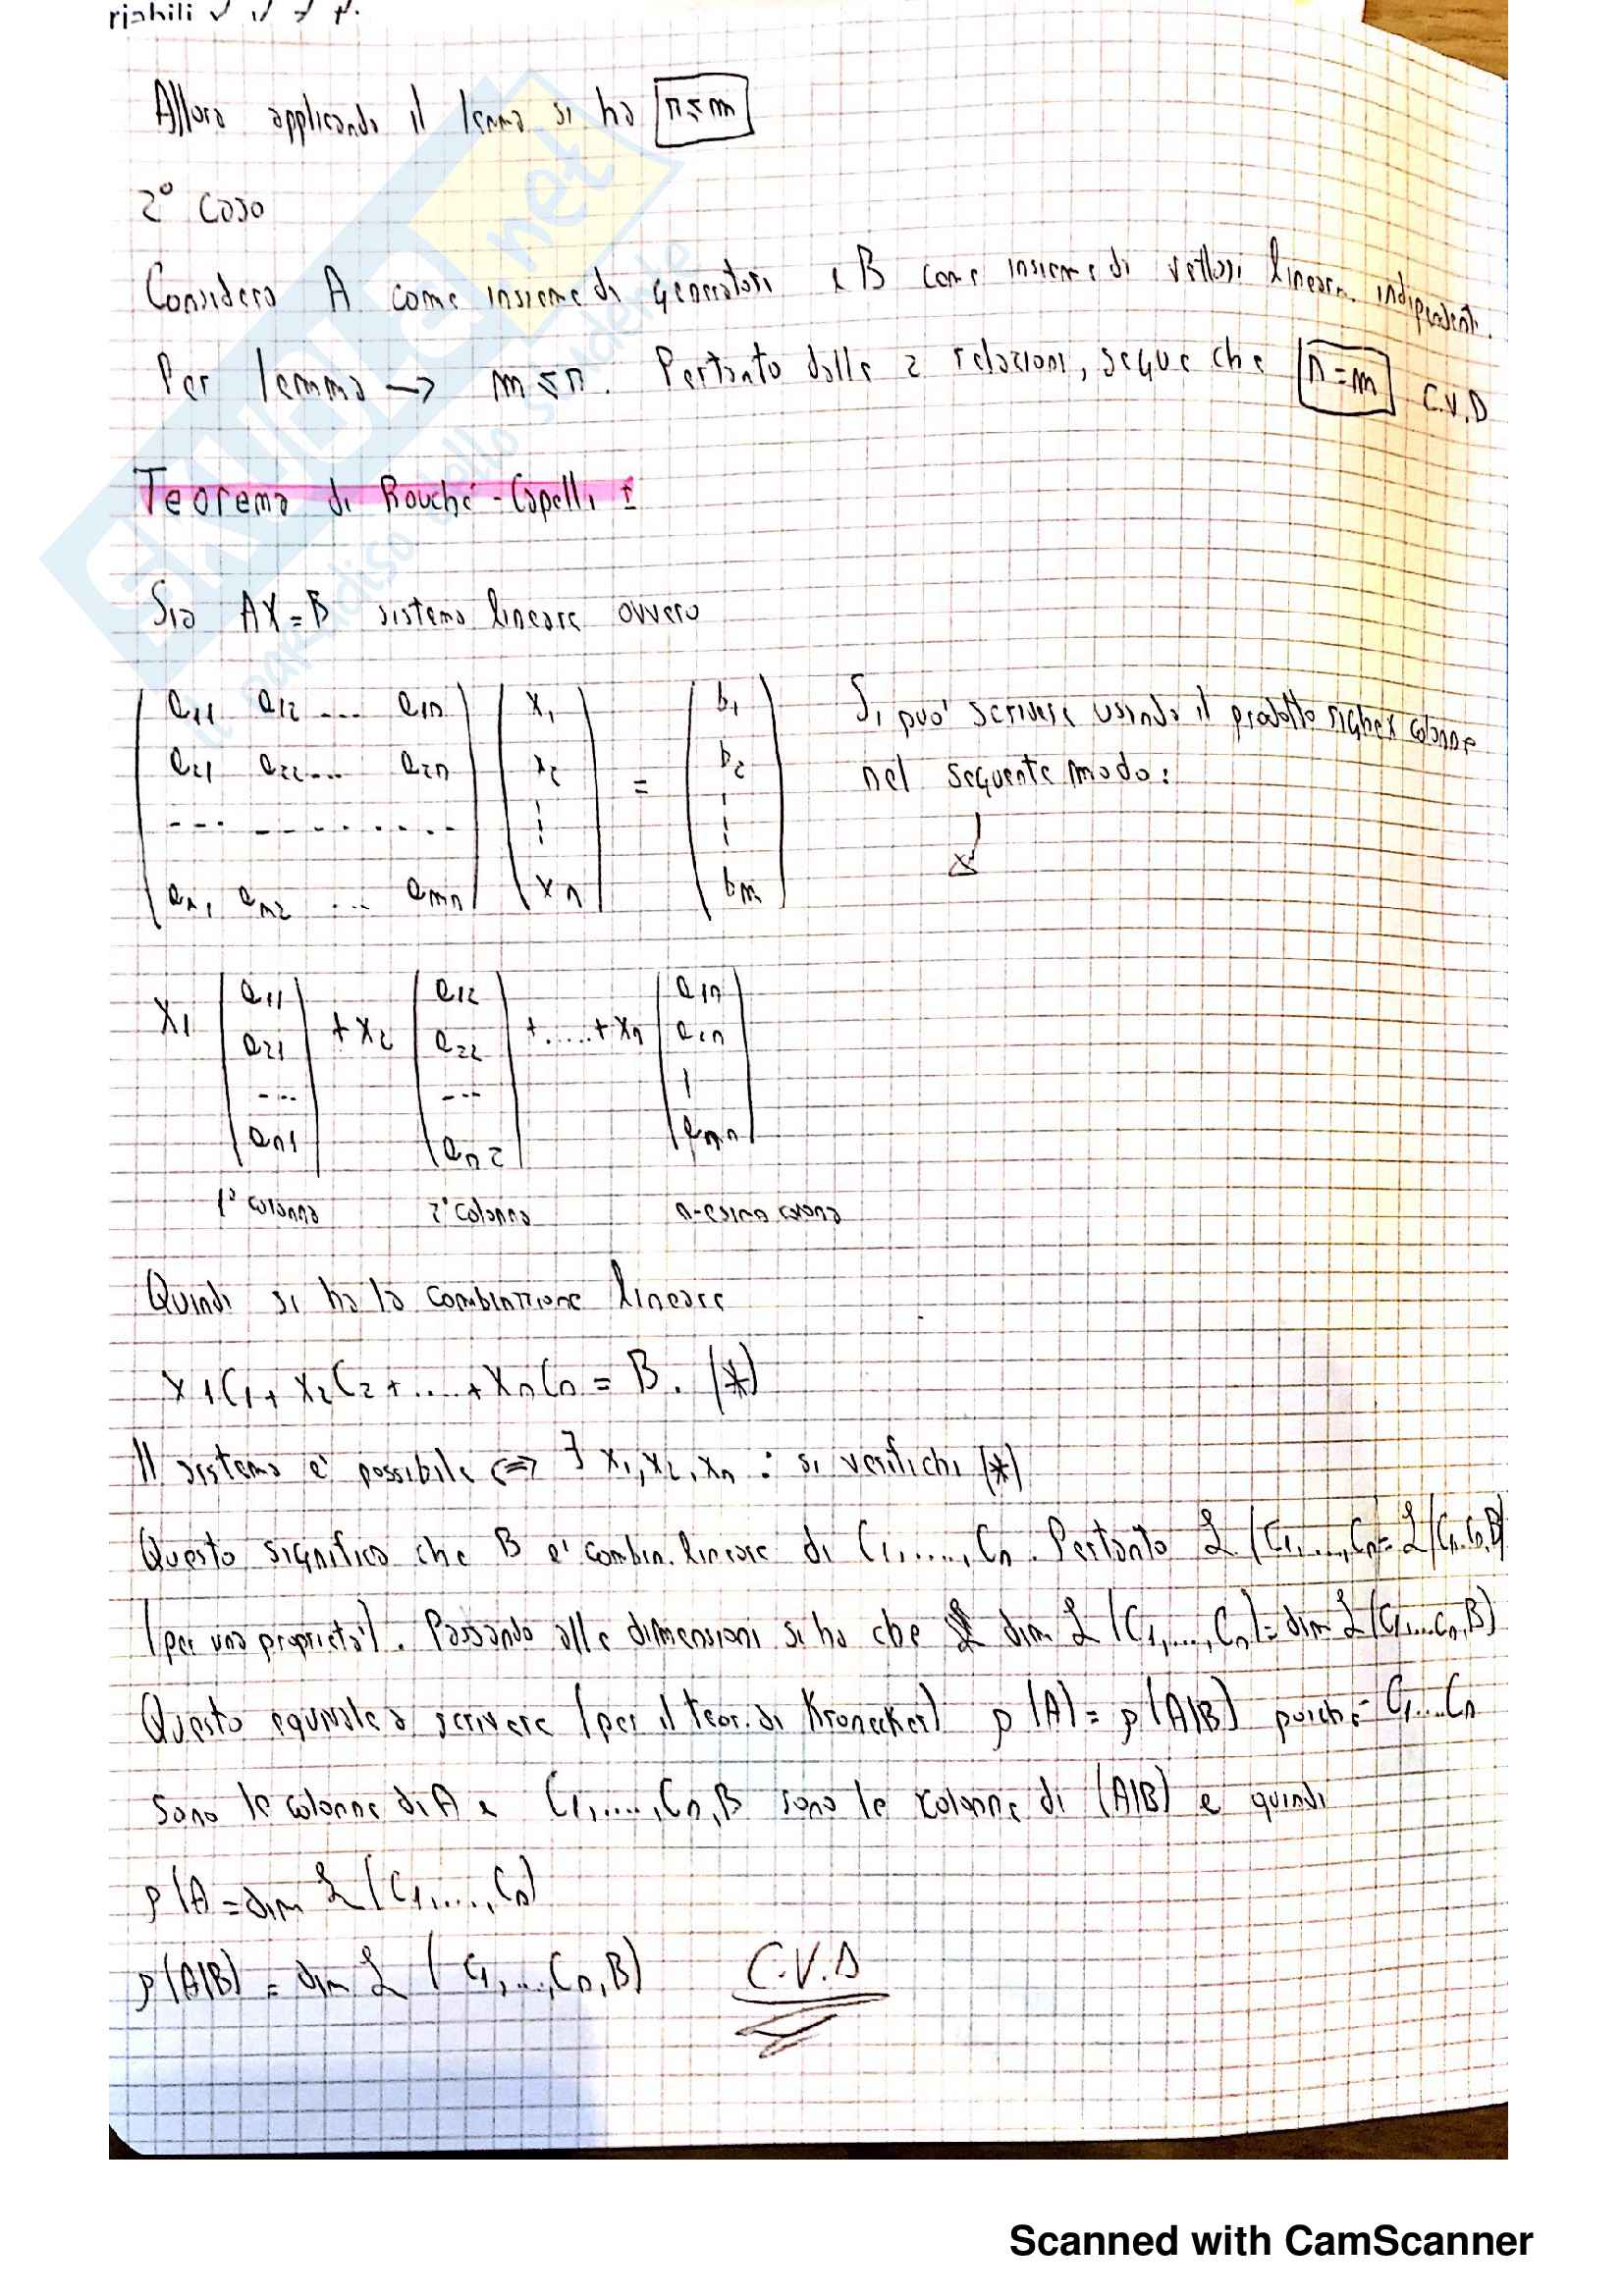 Allora applicando il lemma si ha n≤m
2° caso
Considero A come insieme di generatori e B come insieme di vettori linearm. indipendenti.
Per lemma → m≤n. Pertanto dalle 2 relazioni, segue che n=m C.V.D
Teorema di Rouché-Capelli I
Sia AX=B sistema lineare ovvero
a11 a12 ... a1n x1 b1 Si può scrivere usando il prodotto righe x colonne
a21 a22... a2n x2 = b2 nel seguente modo:
an1 an2 ... amn xn bm
x1 a11 a21 ... an1 + x2 a12 a22 ... an2 + ..... + xn a1n a2n amn
1° colonna 2° colonna n-esima colonna
Quindi si ha la combinazione lineare
x1C1 + x2C2 + .... + xnCn = B. (*)
Il sistema e' possibile <=> ∃ x1, x2, xn : si verifichi (*)
Questo significa che B e' combin. lineare di C1,....., Cn. Pertanto L(C1,...,Cn = L(C1..Cn,B)
(per una proprietà). Passando alle dimensioni si ha che dim L(C1,...,Cn) = dim L(C1...Cn,B)
Questo equivale a scrivere (per il teor. di Kronecker) ρ(A) = ρ(A|B) poiché C1...Cn
sono le colonne di A e C1,....,Cn,B sono le colonne di (A|B) e quindi
ρ(A = dim L(C1,...,Cn)
ρ(A|B) = dim L (C1,...,Cn,B) C.V.D
SKUOLA.net
il paradiso dello studente
Scanned with CamScanner